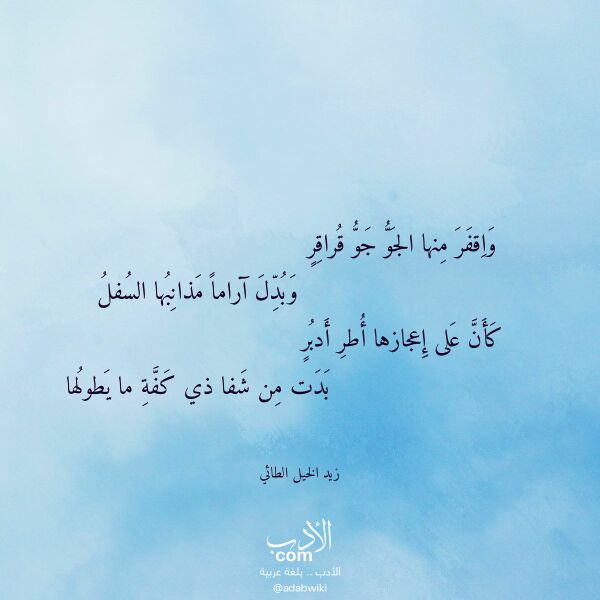 وَاِقفَرَ مِنها الجَوُّ جَوُّ قُراقِرٍ
وَبُدِّلَ آراماً مَذانِبُها السُفلُ
كَأَنَّ عَلى إِعجازها أُطرِ أَدبُرٍ
بَدَت مِن شَفا ذي كَفَّةِ ما يَطولُها
زيد الخيل الطائي
الأدب
com
الأدب .. بلغة عربية
@adabwiki